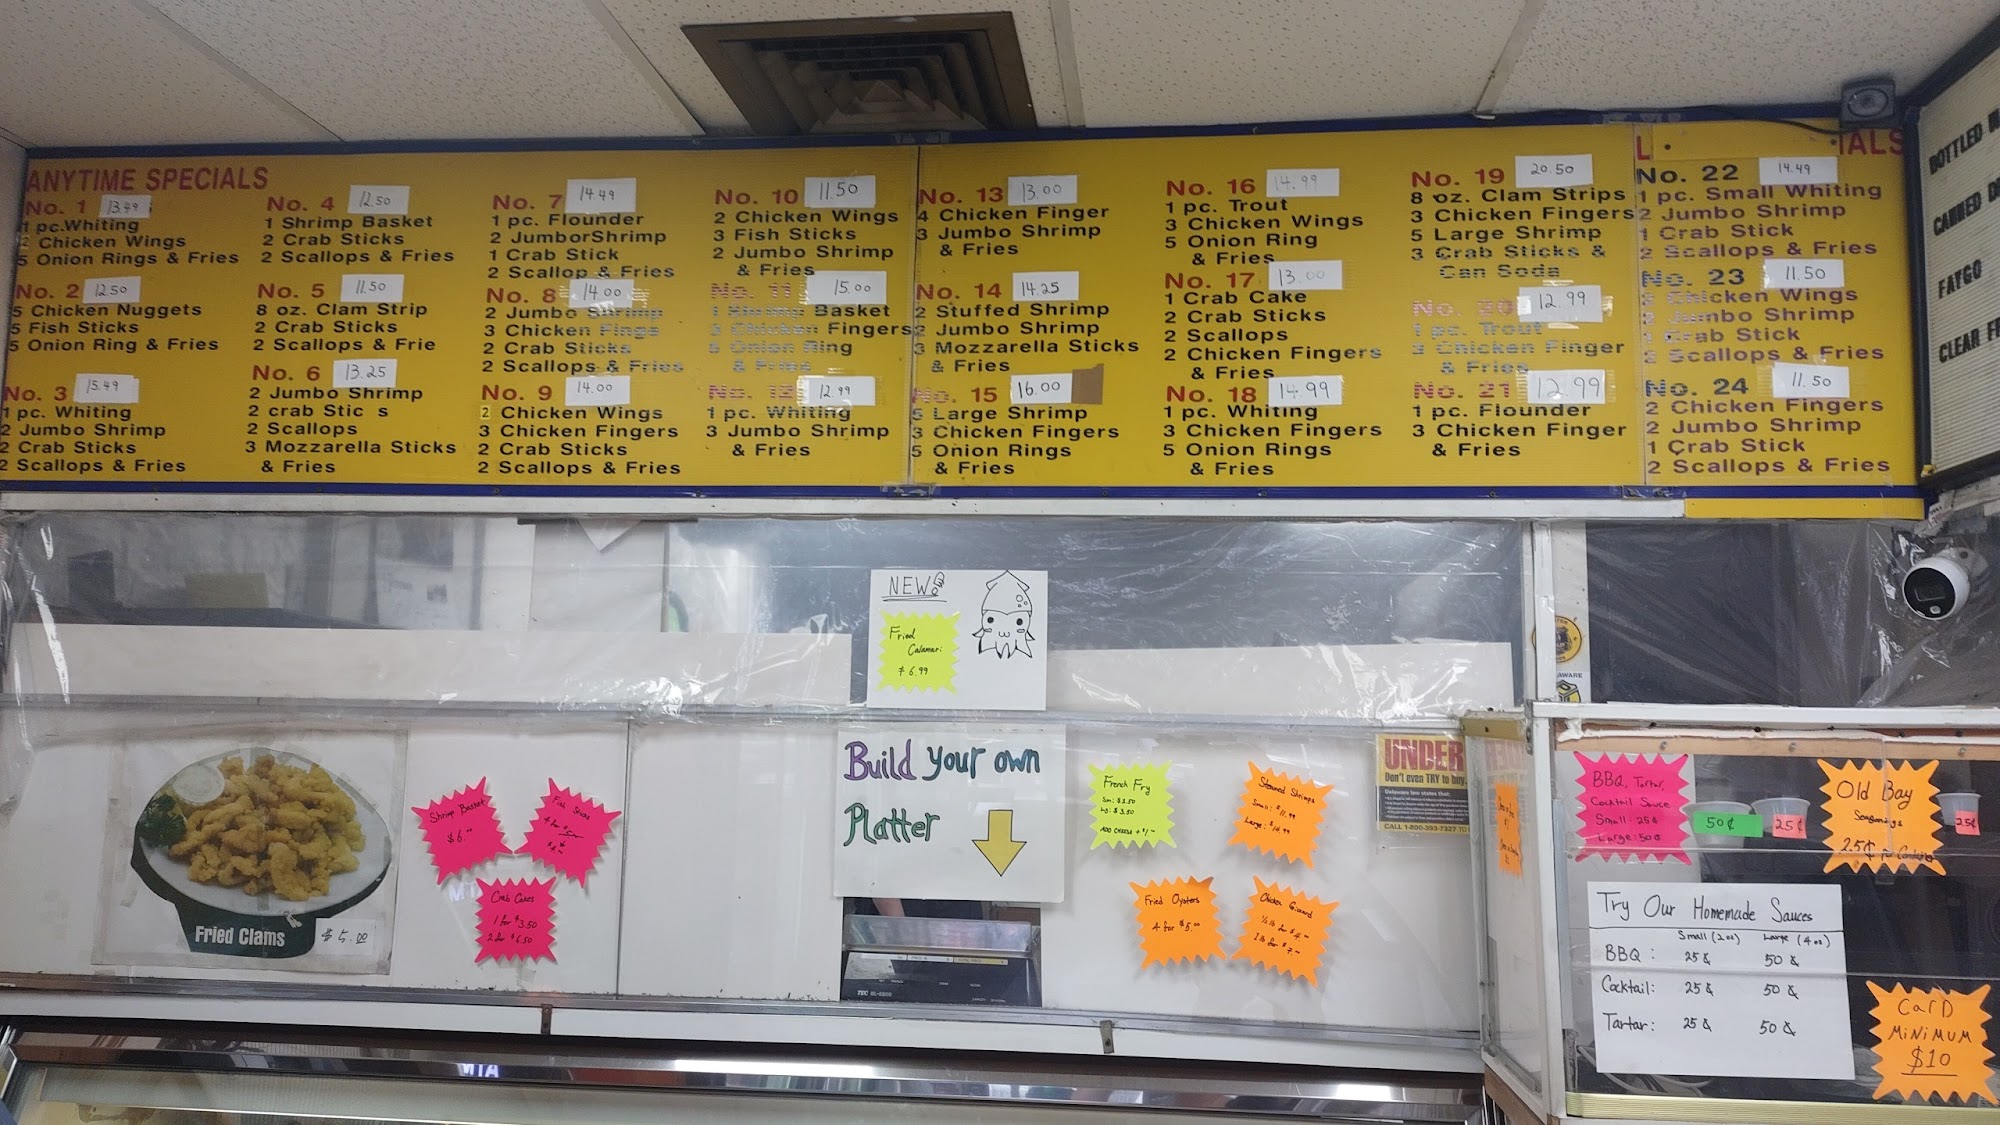 ANYTIME SPECIALS
No. 1 13.49
1 pc. Whiting
2 Chicken Wings
5 Onion Rings & Fries
No. 2 12.50
5 Chicken Nuggets
5 Fish Sticks
5 Onion Ring & Fries
No. 3 15.49
1 pc. Whiting
2 Jumbo Shrimp
2 Crab Sticks
2 Scallops & Fries
No. 4 12.50
1 Shrimp Basket
2 Crab Sticks
2 Scallops & Fries
No. 5 11.50
8 oz. Clam Strip
2 Crab Sticks
2 Scallops & Frie
No. 6 13.25
2 Jumbo Shrimp
2 crab Stic s
2 Scallops
3 Mozzarella Sticks
& Fries
No. 7 14.49
1 pc. Flounder
2 JumborShrimp
1 Crab Stick
2 Scallop & Fries
No. 8 14.00
2 Jumbo Shrimp
3 Chicken Fings
2 Crab Sticks
2 Scallops & Fries
No. 9 14.00
2 Chicken Wings
3 Chicken Fingers
2 Crab Sticks
2 Scallops & Fries
No. 10 11.50
2 Chicken Wings
3 Fish Sticks
2 Jumbo Shrimp
& Fries
No. 11 15.00
1 Shrimp Basket
3 Chicken Fingers
5 Onion Ring
& Fries
No. 12 12.99
1 pc. Whiting
3 Jumbo Shrimp
& Fries
No. 13 13.00
4 Chicken Finger
3 Jumbo Shrimp
& Fries
No. 14 14.25
2 Stuffed Shrimp
2 Jumbo Shrimp
3 Mozzarella Sticks
& Fries
No. 15 16.00
5 Large Shrimp
3 Chicken Fingers
5 Onion Rings
& Fries
No. 16 14.99
1 pc. Trout
3 Chicken Wings
5 Onion Ring
& Fries
No. 17 13.00
1 Crab Cake
2 Crab Sticks
2 Scallops
2 Chicken Fingers
& Fries
No. 18 14.99
1 pc. Whiting
3 Chicken Fingers
5 Onion Rings
& Fries
No. 19 20.50
8 oz. Clam Strips
3 Chicken Fingers
5 Large Shrimp
3 Crab Sticks &
Can Soda
No. 20 12.99
1 pc. Trout
3 Chicken Finger
& Fries
No. 21 12.99
1 pc. Flounder
3 Chicken Finger
& Fries
L IALS
No. 22 14.49
1 pc. Small Whiting
2 Jumbo Shrimp
1 Crab Stick
2 Scallops & Fries
No. 23 11.50
Chicken Wings
Jumbo Shrimp
1 Crab Stick
2 Scallops & Fries
No. 24 11.50
2 Chicken Fingers
2 Jumbo Shrimp
1 Crab Stick
2 Scallops & Fries
BOTTLED
CANNED
FAYGO
CLEAR
NEW!
Fried
Calamari
$6.99
Build your own
Platter
Fried Clams $5.00
Shrimp Basket
$6.
Fish Sticks
4 for
Crab Cakes
1 for $3.50
2 for $6.50
French Fry
Sm: $2.50
Lg: $3.50
ADD CHEESE + $1
Steamed Shrimps
Small: $11.99
Large: $14.99
Fried Oysters
4 for $5.00
Chicken Gizzard
1/2 lb for $4.
1 lb for $7.
UNDER
Don't even TRY to buy
Delaware law states that:
CALL 1-800-393-7327 TO
AWARE
BBQ, Tartar,
Cocktail Sauce
Small: 25¢
Large: 50¢
50¢
25¢
Old Bay
Seasonings
25¢ for Container
25¢
Try Our Homemade Sauces
Small (2 oz) Large (4 oz)
BBQ: 25¢ 50¢
Cocktail: 25¢ 50¢
Tartar: 25¢ 50¢
CARD
MINIMUM
$10
TEC
MTA